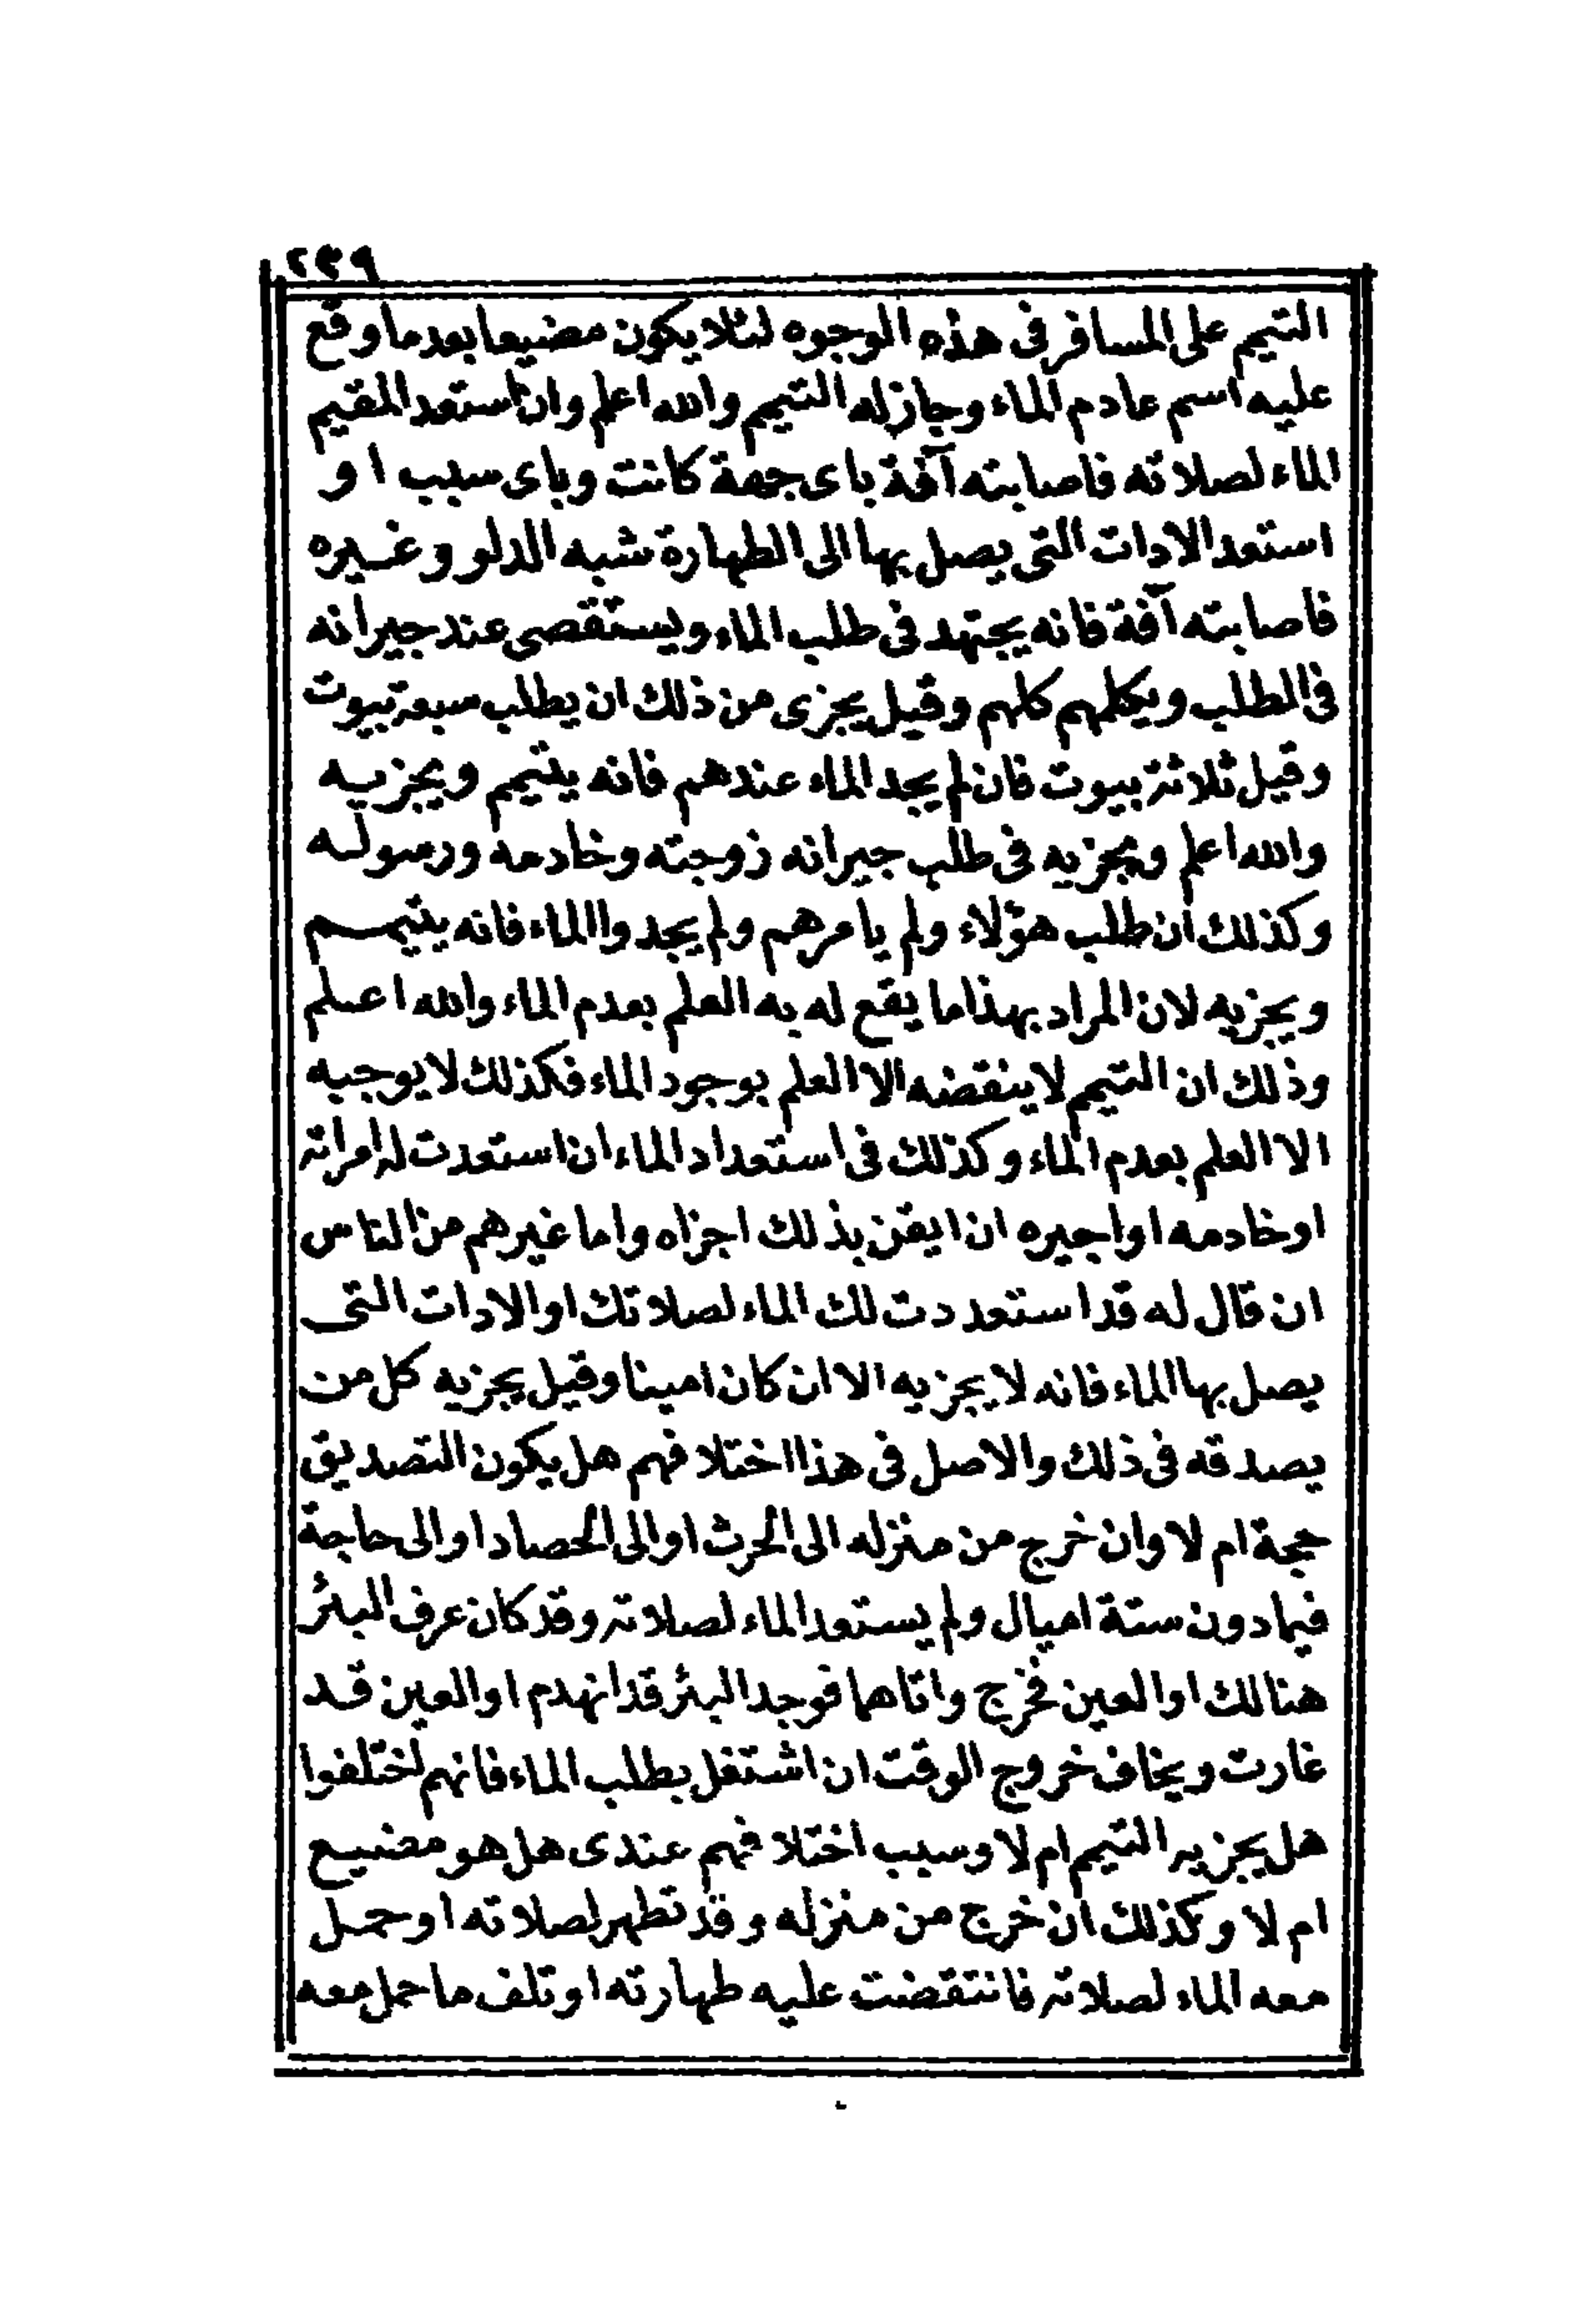 ٢٣٩
التيمم على المسافر فى هذه الوجوه لئلا يكون مضيعا بعدما وقع
عليه اسم عادم الماء وجاز له التيمم والله اعلم وان استعد المقيم
الماء لصلاته فاصابته آفة باى جهة كانت وباى سبب او
استعد الادات التى يصل بها الى الطهارة شبه الدلو وغيره
فاصابته آفة فانه يجتهد فى طلب الماء ويستقصى عند جيرانه
فى الطلب ويكلمهم كلهم وقيل يجزى من ذلك ان يطلب سبعة بيوت
وقيل ثلاثة بيوت فان لم يجد الماء عندهم فانه يتيمم ويجزيه
والله اعلم ويجزيه فى طلب جيرانه زوجته وخادمه ورسوله
وكذلك ان طلب هؤلاء ولم يامرهم ولم يجدوا الماء فانه يتيمم
ويجزيه لان المراد بهذا ما يقع له به العلم بعدم الماء والله اعلم
وذلك ان التيمم لا ينقضه الا العلم بوجود الماء فكذلك لا يوجبه
الا العلم بعدم الماء وكذلك فى استعداد الماء ان استعدت له امراته
او خادمه او اجيره ان ايقن بذلك اجزاه واما غيرهم من الناس
ان قال له قد استعددت لك الماء لصلاتك او الادات التى
يصل بها الماء فانه لا يجزيه الا ان كان امينا وقيل يجزيه كل من
يصدقه فى ذلك والاصل فى هذا اختلافهم هل يكون التصديق
حجة ام لا وان خرج من منزله الى الحرث او الى الحصاد او الى حاجة
فيما دون ستة اميال ولم يستعد الماء لصلاته وقد كان عرف البئر
هنالك او العين فخرج واتاهما فوجد البئر قد انهدم او العين قد
غارت ويخاف خروج الوقت ان اشتغل بطلب الماء فانهم اختلفوا
هل يجزيه التيمم ام لا وسبب اختلافهم عندى هل هو مضيع
ام لا وكذلك ان خرج من منزله وقد تطهر لصلاته او حمل
معه الماء لصلاته فانتقضت عليه طهارته او تلف ما حمل معه